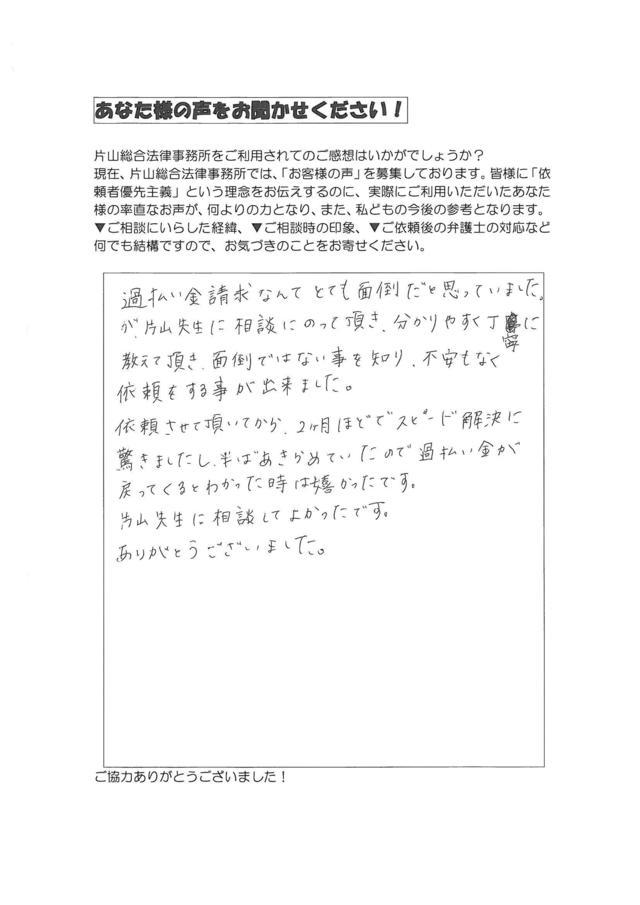 あなた様の声をお聞かせください！
片山総合法律事務所をご利用されてのご感想はいかがでしょうか？
現在、片山総合法律事務所では、「お客様の声」を募集しております。皆様に「依
頼者優先主義」という理念をお伝えするのに、実際にご利用いただいたあなた
様の率直なお声が、何よりの力となり、また、私どもの今後の参考となります。
▼ご相談にいらした経緯、▼ご相談時の印象、▼ご依頼後の弁護士の対応など
何でも結構ですので、お気づきのことをお寄せください。
過払い金請求なんてとても面倒だと思っていました。
が、片山先生に相談にのって頂き、分かりやすく丁寧に
教えて頂き、面倒ではない事を知り、不安もなく
依頼をする事が出来ました。
依頼させて頂いてから、2ヶ月ほどでスピード解決に
驚きましたし、半ばあきらめていたので過払い金が
戻ってくるとわかった時は嬉かったです。
片山先生に相談してよかったです。
ありがとうございました。
ご協力ありがとうございました！